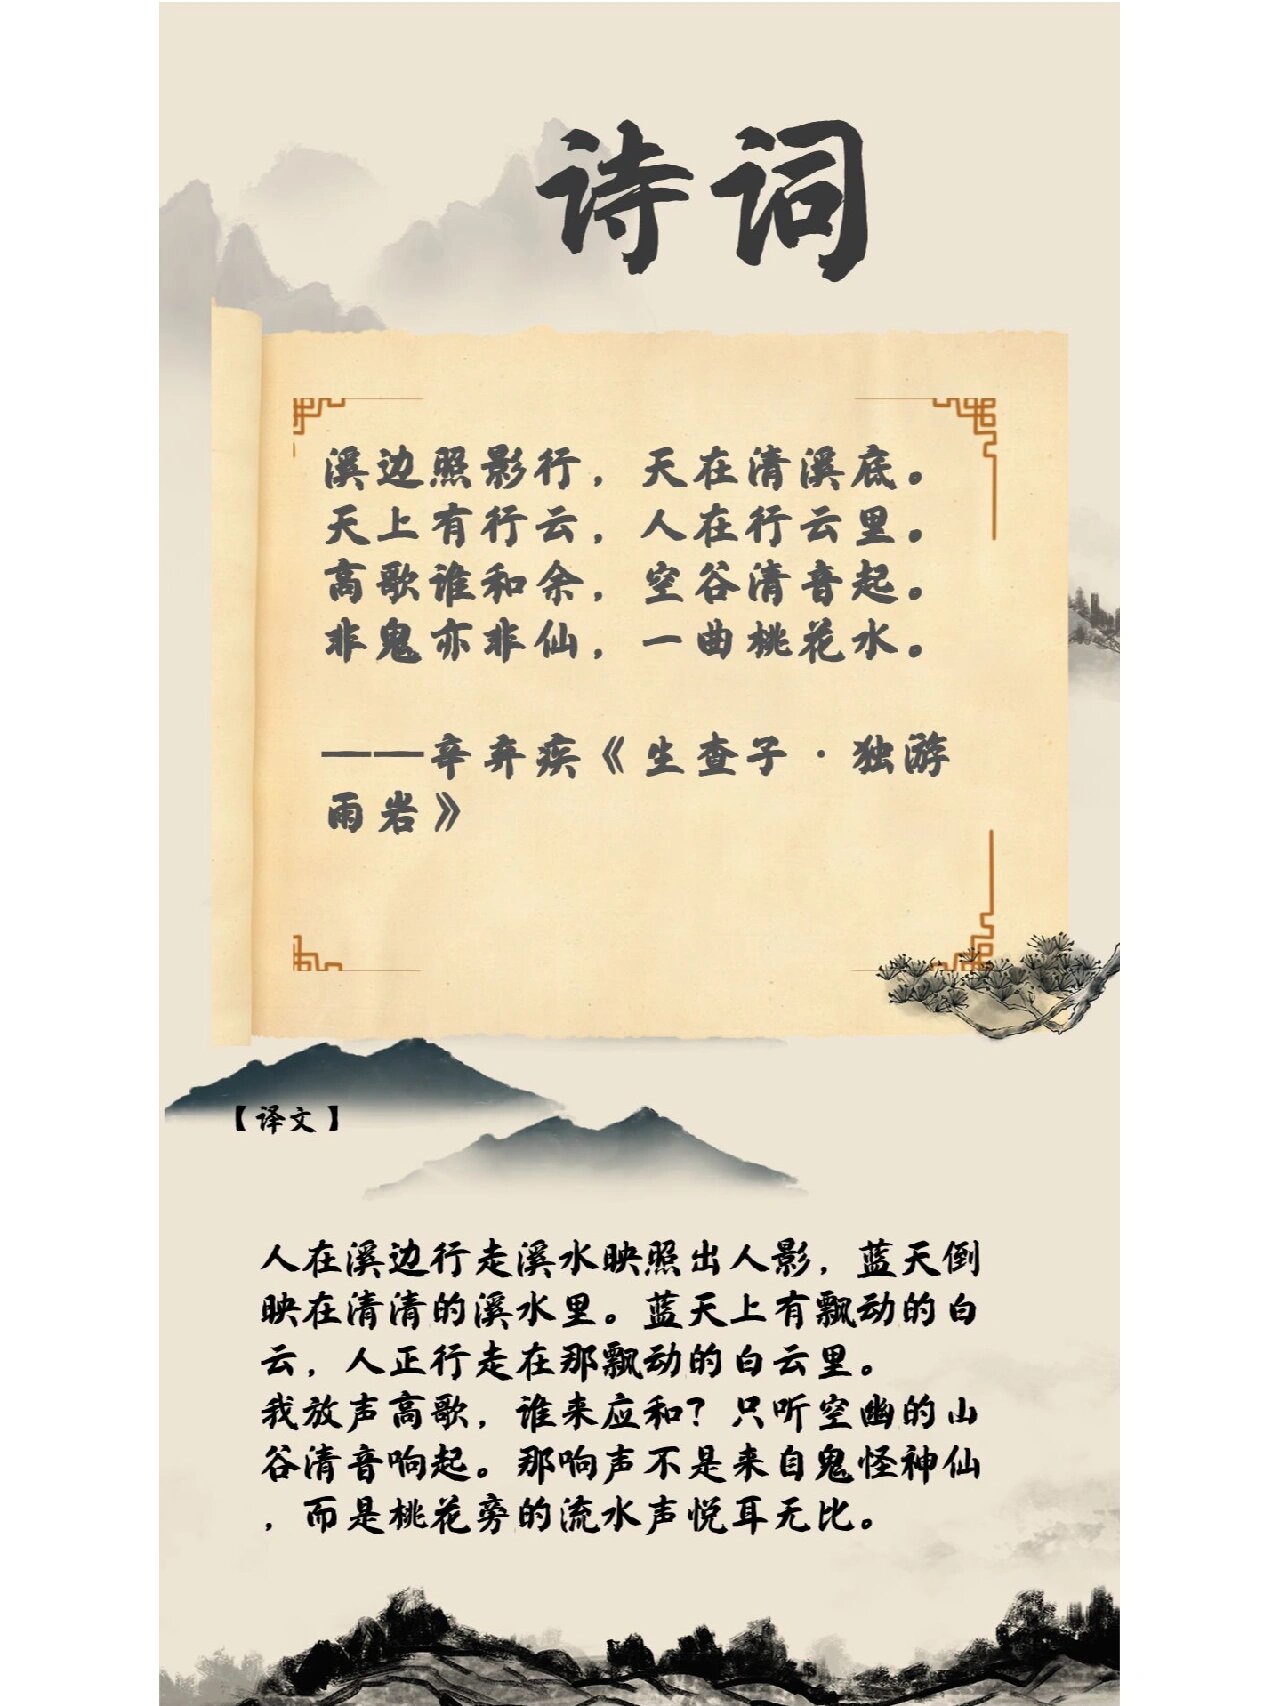 诗词
溪边照影行，天在清溪底。
天上有行云，人在行云里。
高歌谁和余，空谷清音起。
非鬼亦非仙，一曲桃花水。
——辛弃疾《生查子·独游
雨岩》
【译文】
人在溪边行走溪水映照出人影，蓝天倒
映在清清的溪水里。蓝天上有飘动的白
云，人正行走在那飘动的白云里。
我放声高歌，谁来应和？只听空幽的山
谷清音响起。那响声不是来自鬼怪神仙
，而是桃花旁的流水声悦耳无比。